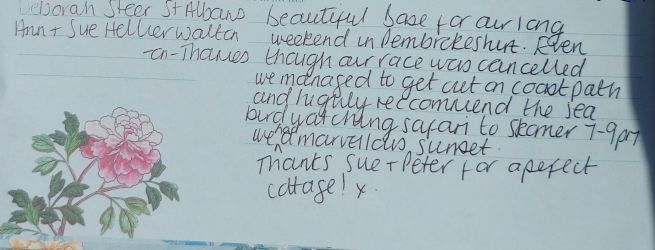 Deborah Steer St Albans
Ann + Sue Hellier Walton
-on-Thames
beautiful base for our long
weekend in Pembrokeshire. Even
though our race was cancelled
we managed to get out on coast path
and highly reccommend the sea
bird watching safari to Skomer 7-9pm
we had a marvellous sunset.
Thanks Sue + Peter for a perfect
cottage! x.